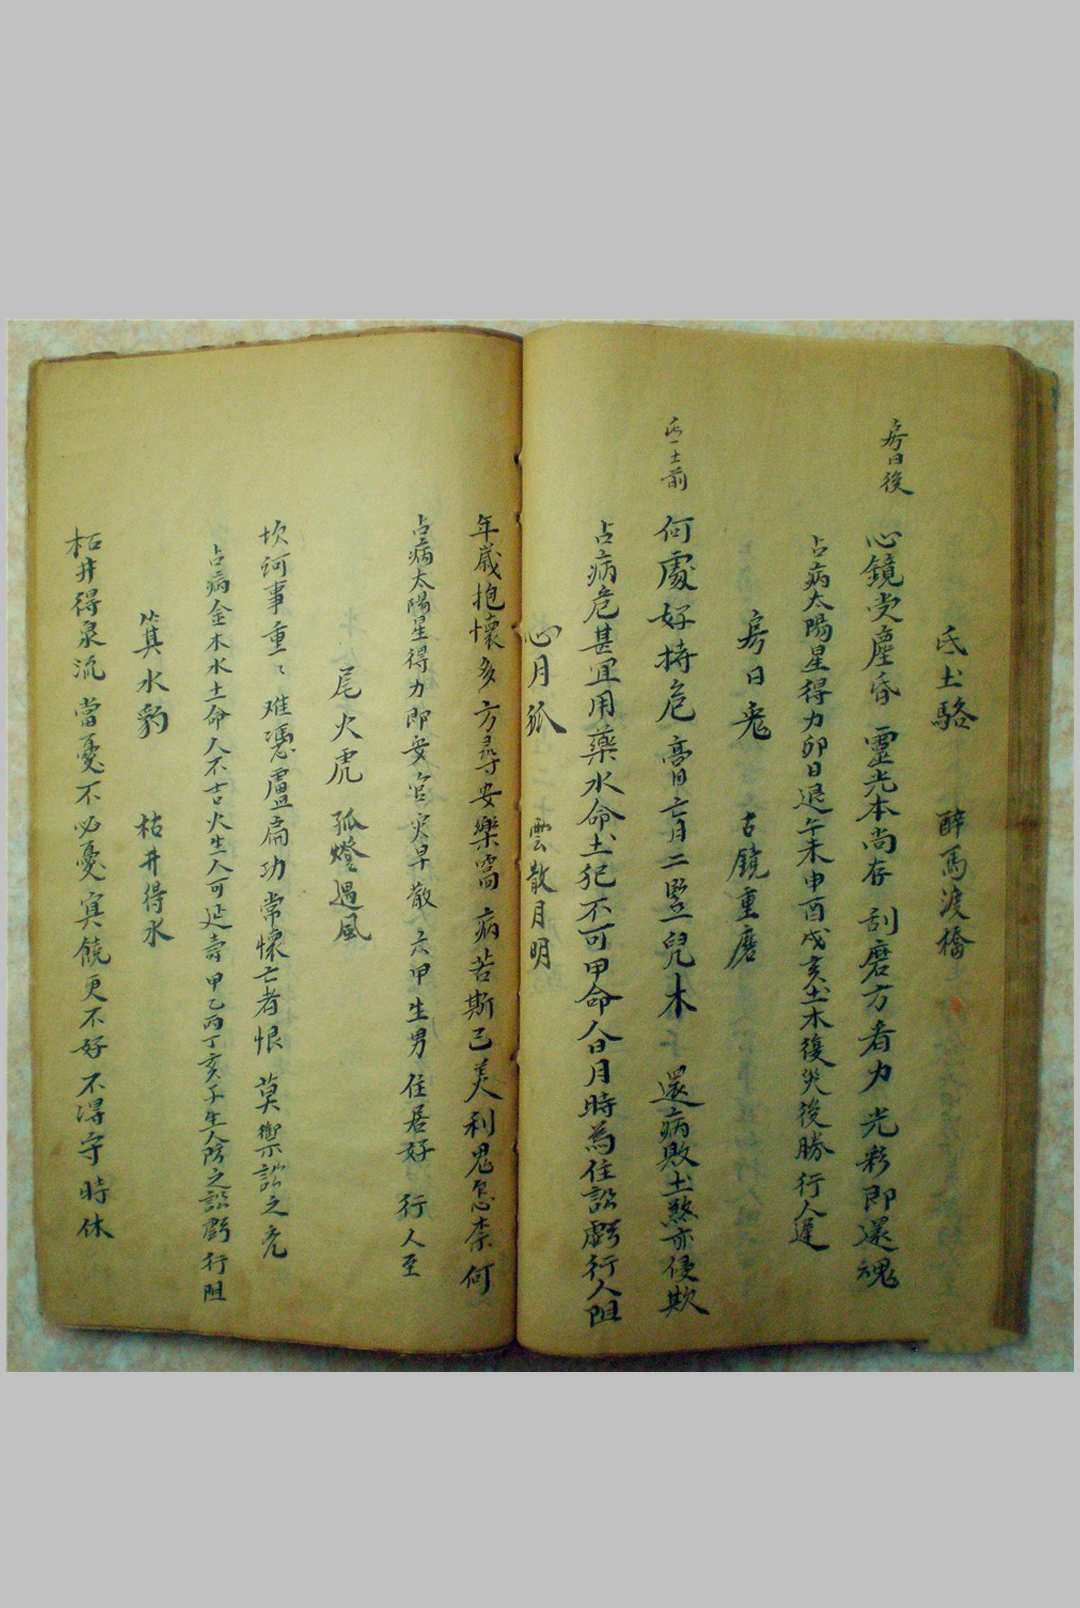 氐土駱　醉馬渡橋
房日後
心鏡尚塵昏　靈光本尚存　刮磨方着力　光彩即還魂
占病太陽星得力卯日退午未申酉戌亥土木復災後勝行人遲
房日兎　古鏡重磨
氐土前
何處好持危　膏肓二竪兒木　還病敗土煞亦侵欺
占病危甚宜用藥水命土犯不可甲命人日月時為住訟虧行人阻
心月狐　雲散月明
年歲抱懷多　方尋安樂窩　病苦斯已美　利鬼怎奈何
占病太陽星得力即安官災早散六甲生男住居好行人至
尾火虎　孤燈過風
坎坷事重〻　难憑盧扁功　常懷亡者恨　莫禦訟之
占病金木水土命人不吉火生人可延壽甲乙丙丁亥子生人防之訟虧行阻
箕水豹　枯井得水
枯井得泉流　當憂不必憂　寘饒更不好　不得守時休